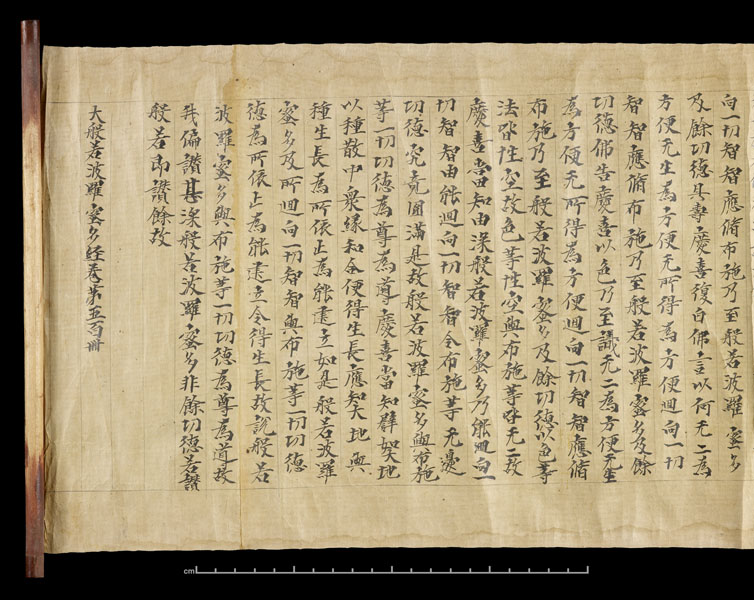 向一切智智應脩布施乃至般若波羅蜜多
及餘功德具壽慶喜復白佛言以何无二為
方便无生為方便无所得為方便迴向一切
智智應脩布施乃至般若波羅蜜多及餘
功德佛告慶喜以色乃至識无二為方便无生
為方便无所得為方便迴向一切智智應脩
布施乃至般若波羅蜜多及餘功德以色等
法性空故色等性空與布施等皆无二故
慶喜當知由深般若波羅蜜多乃能迴向一
切智智由能迴向一切智智令布施等无邊
功德究竟圓滿是故般若波羅蜜多與布施
等一切功德為尊為導慶喜當知譬如大地
以種散中衆緣和合便得生長應知大地與
種生長為所依止為能建立如是般若波羅
蜜多及所迴向一切智智與布施等一切功德
德為所依止為能建立令得生長故說般若
波羅蜜多與布施等一切功德為尊為導故
我偏讚甚深般若波羅蜜多非餘功德若讚
般若即讚餘故
大般若波羅蜜多經卷第五百卌
cm